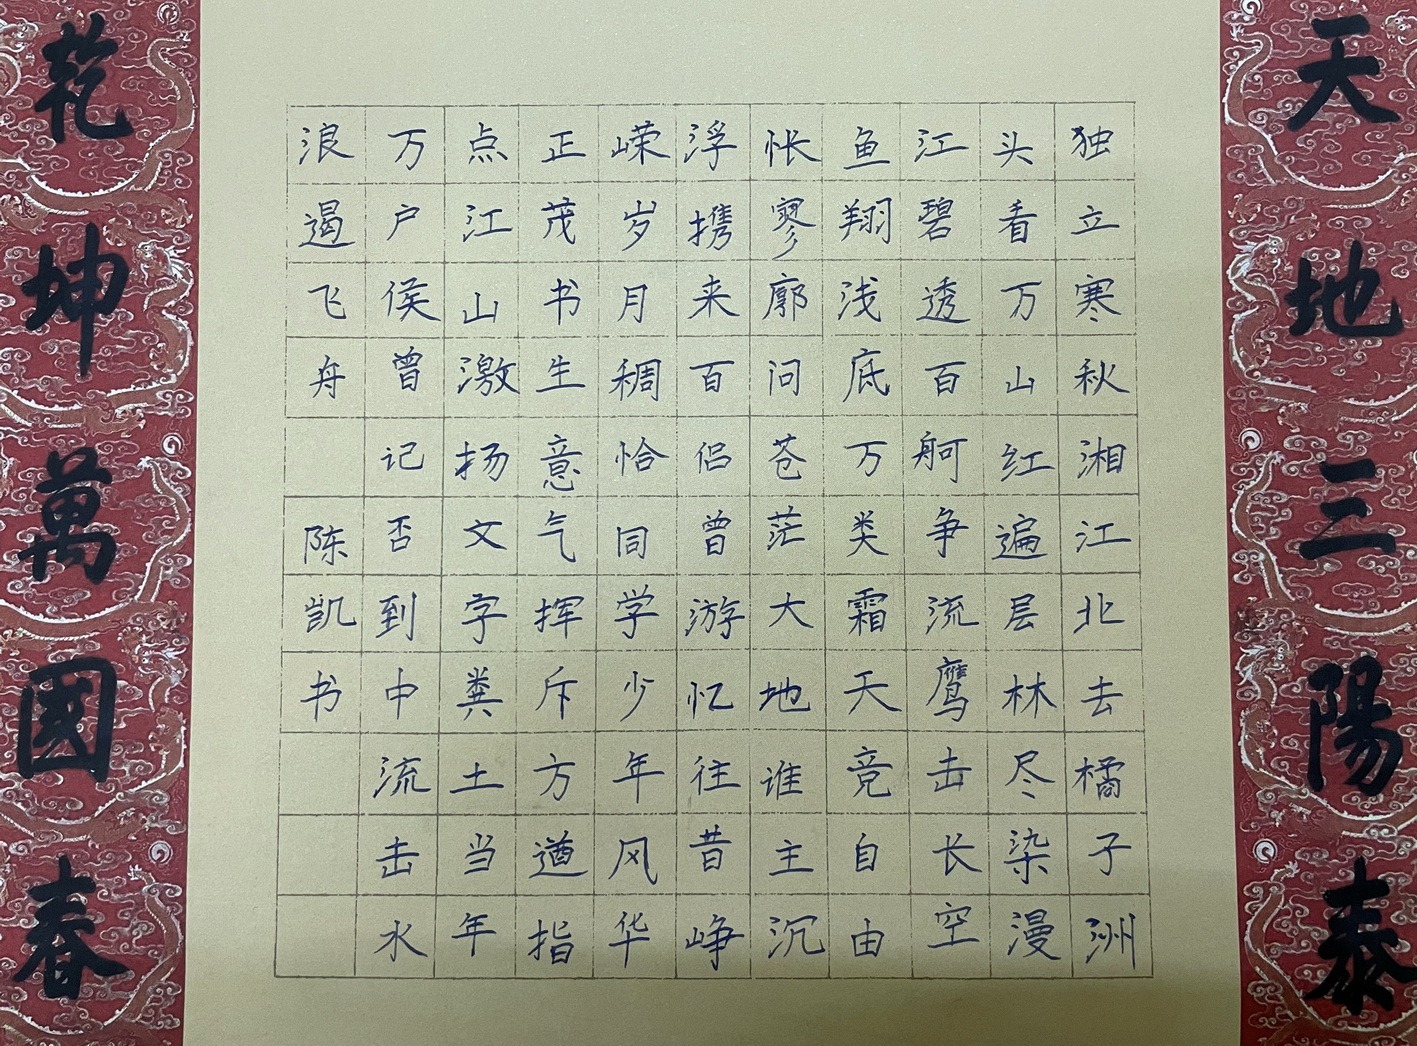 天地三陽泰
独立寒秋湘江北去橘子洲
头看万山红遍层林尽染漫
江碧透百舸争流鹰击长空
鱼翔浅底万类霜天竞自由
怅寥廓问苍茫大地谁主沉
浮携来百侣曾游忆往昔峥
嵘岁月稠恰同学少年风华
正茂书生意气挥斥方遒指
点江山激扬文字粪土当年
万户侯曾记否到中流击水
浪遏飞舟 陈凯书
乾坤萬國春